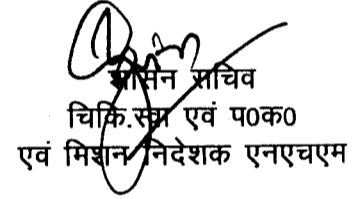 शासन सचिव
चिकि.स्वा एवं प0क0
एवं मिशन निदेशक एनएचएम